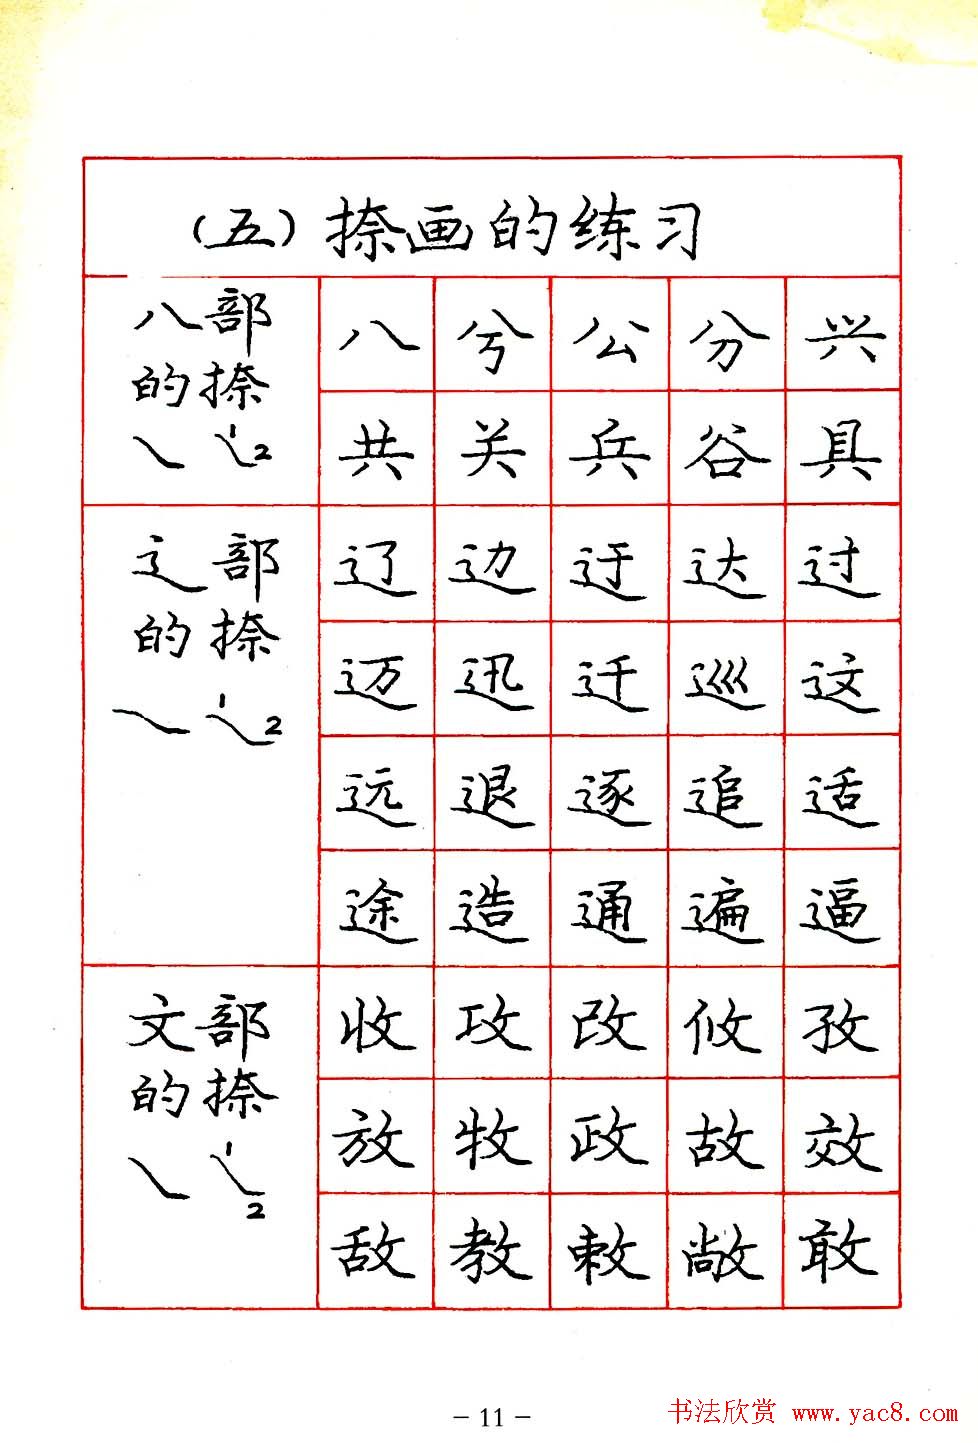 (五)捺画的练习
八部
的捺
1 2
八 兮 公 分 兴
共 关 兵 谷 具
辶部
的捺
1 2
辽 边 迂 达 过
迈 迅 迁 巡 这
远 退 逐 追 适
途 造 通 遍 逼
文部
的捺
1 2
收 攻 改 攸 孜
放 牧 政 故 效
敌 教 敕 敞 敢
- 11 -
书法欣赏 www.yac8.com